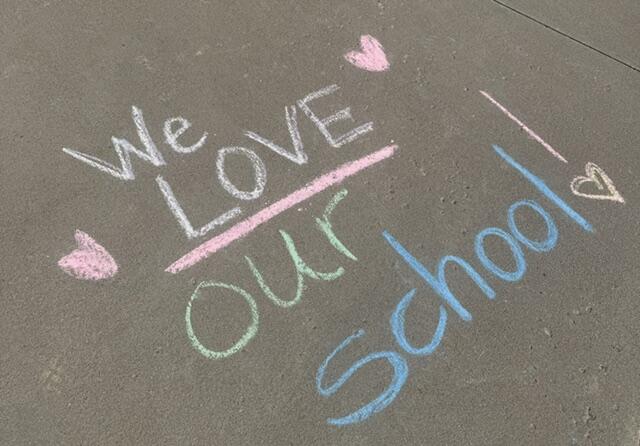 We
LOVE
our
school!